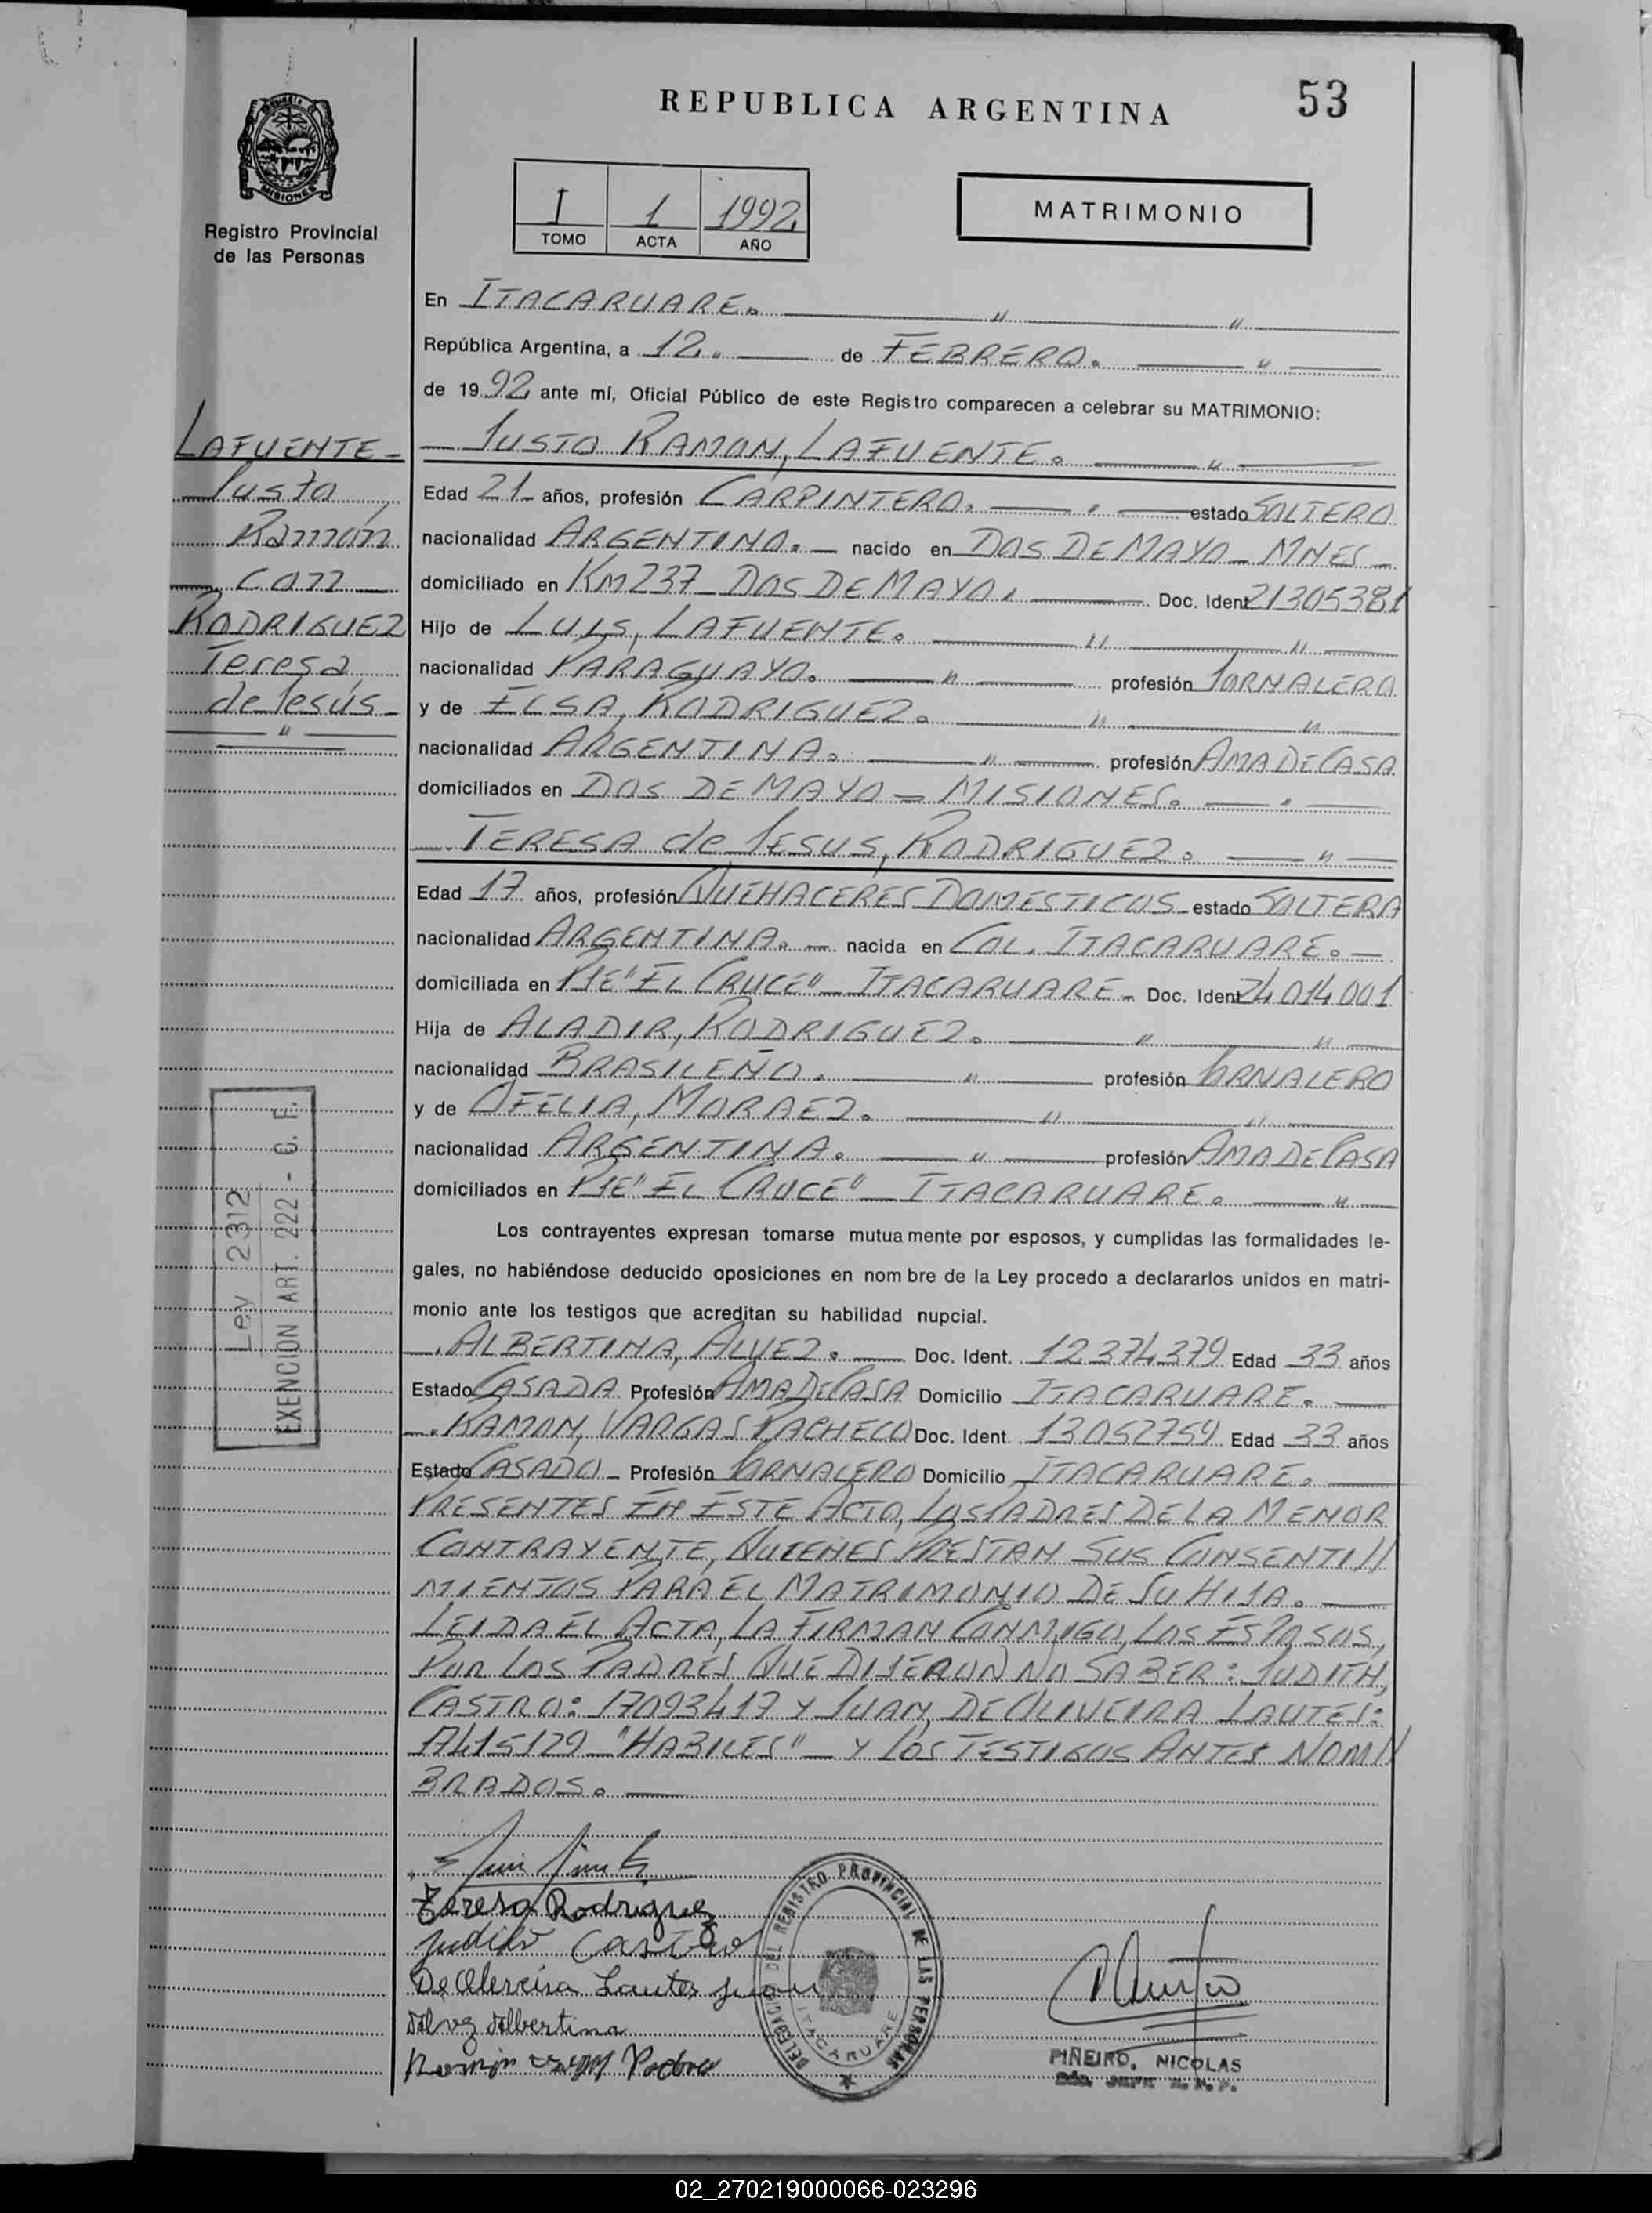 53
REPUBLICA ARGENTINA
MISIONES
Registro Provincial
de las Personas
I 1 1992
TOMO ACTA AÑO
MATRIMONIO
En ITACARUARE.
República Argentina, a 12. de FEBRERO.
de 1992 ante mí, Oficial Público de este Registro comparecen a celebrar su MATRIMONIO:
LAFUENTE
Justo
Ramón
con
RODRIGUEZ
Teresa
de Jesús
JUSTO RAMON, LAFUENTE.
Edad 21 años, profesión CARPINTERO. estado SOLTERO
nacionalidad ARGENTINO. nacido en DOS DE MAYO - MNES
domiciliado en KM 237 - DOS DE MAYO. Doc. Ident 21305381
Hijo de LUIS, LAFUENTE.
nacionalidad PARAGUAYO. profesión JORNALERO
y de ELSA, RODRIGUEZ.
nacionalidad ARGENTINA. profesión AMA DE CASA
domiciliados en DOS DE MAYO - MISIONES.
TERESA de JESUS, RODRIGUEZ.
Edad 17 años, profesión QUEHACERES DOMESTICOS estado SOLTERA
nacionalidad ARGENTINA. nacida en COL. ITACARUARE.
domiciliada en PJE "EL CRUCE" - ITACARUARE - Doc. Ident 24014001
Hija de ALADIR, RODRIGUEZ.
nacionalidad BRASILEÑO. profesión JORNALERO
y de OFELIA, MORAEZ.
nacionalidad ARGENTINA. profesión AMA DE CASA
domiciliados en PJE "EL CRUCE" - ITACARUARE.
Los contrayentes expresan tomarse mutuamente por esposos, y cumplidas las formalidades le-
gales, no habiéndose deducido oposiciones en nombre de la Ley procedo a declararlos unidos en matri-
monio ante los testigos que acreditan su habilidad nupcial.
ALBERTINA, ALVEZ. Doc. Ident. 12374379 Edad 33 años
Estado CASADA Profesión AMA DE CASA Domicilio ITACARUARE.
RAMON, VARGAS PACHECO Doc. Ident. 13052759 Edad 33 años
Estado CASADO - Profesión JORNALERO Domicilio ITACARUARE.
PRESENTES EN ESTE ACTO, LOS PADRES DE LA MENOR
CONTRAYENTE, QUIENES PRESTAN SUS CONSENTI//
MIENTOS PARA EL MATRIMONIO DE SU HIJA.
LEIDA EL ACTA, LA FIRMAN CONMIGO, LOS ESPOSOS,
POR LOS PADRES QUE DIJERON NO SABER: JUDITH,
CASTRO: 17093417 Y JUAN, DE OLIVEIRA LAUTES:
17415129 "HABILES" - Y LOS TESTIGOS ANTES NOM//
BRADOS.
Ley 2312
EXENCION ART. 222 - C. F.
Teresa Rodriguez
Judith Castro
De Oliveira Lautes Juan
Alvez Albertina
Ramón Pacheco
DELEGACION DEL REGISTRO PROVINCIAL DE LAS PERSONAS
ITACARUARE
PIÑEIRO, NICOLAS
02_270219000066-023296